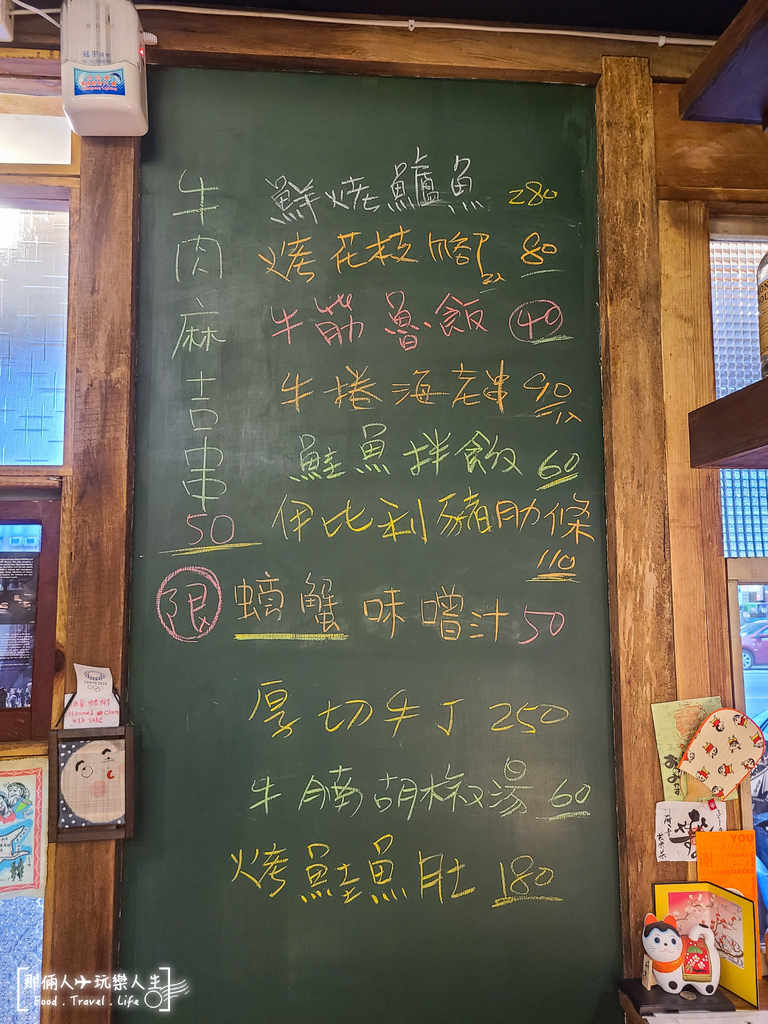 牛肉麻吉串
50
鮮烤鱸魚 280
烤花枝腳 80
牛筋魯飯 40
牛捲海老串 90
鮭魚拌飯 60
伊比利豬肋條
110
限 螃蟹味噌汁 50
厚切牛丁 250
牛腩胡椒湯 60
烤鮭魚肚 180
TOKYO 2020
steamed clam
with sake
YOU
那倆人玩樂人生
Food . Travel . Life